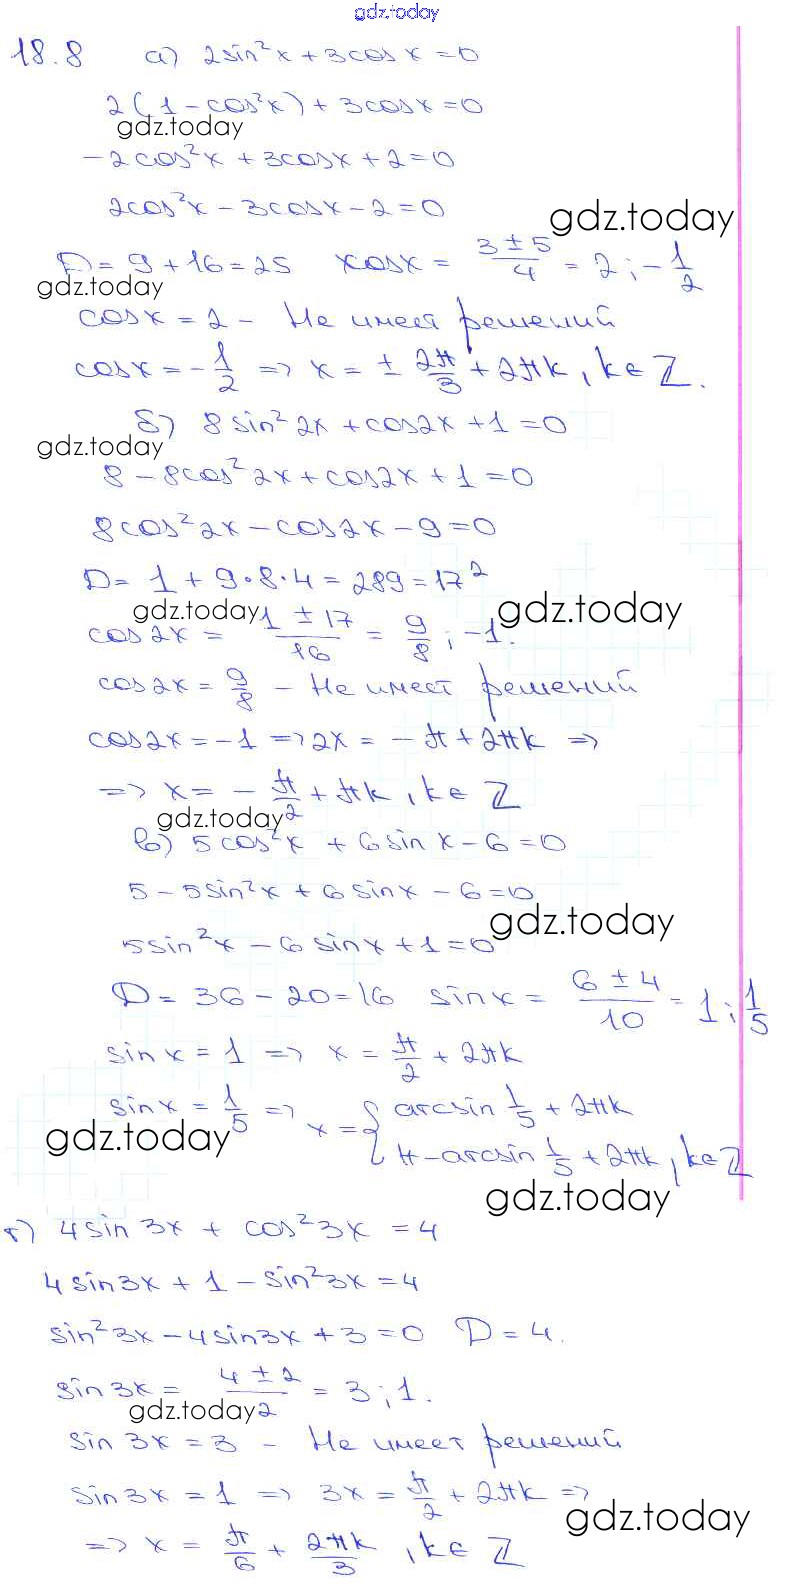 gdz.today
18.8 а) 2sin²x + 3cosx = 0
2(1 - cos²x) + 3cosx = 0
gdz.today
-2cos²x + 3cosx + 2 = 0
2cos²x - 3cosx - 2 = 0
gdz.today
D = 9 + 16 = 25 cosx = (3 ± 5)/4 = 2 ; -1/2
gdz.today
cosx = 2 - Не имеет решений
cosx = -1/2 => x = ± 2π/3 + 2πk, k ∈ Z.
б) 8sin²2x + cos2x + 1 = 0
gdz.today
8 - 8cos²2x + cos2x + 1 = 0
8cos²2x - cos2x - 9 = 0
D = 1 + 9·8·4 = 289 = 17²
gdz.today gdz.today
cos2x = (1 ± 17)/16 = 9/8 ; -1.
cos2x = 9/8 - Не имеет решений
cos2x = -1 => 2x = -π + 2πk =>
=> x = -π/2 + πk, k ∈ Z
gdz.today
в) 5cos²x + 6sinx - 6 = 0
5 - 5sin²x + 6sinx - 6 = 0
gdz.today
5sin²x - 6sinx + 1 = 0
D = 36 - 20 = 16 sinx = (6 ± 4)/10 = 1 ; 1/5
sinx = 1 => x = π/2 + 2πk
sinx = 1/5 => x = { arcsin 1/5 + 2πk
gdz.today
π - arcsin 1/5 + 2πk, k ∈ Z
gdz.today
г) 4sin3x + cos²3x = 4
4sin3x + 1 - sin²3x = 4
sin²3x - 4sin3x + 3 = 0 D = 4.
sin3x = (4 ± 2)/2 = 3 ; 1.
gdz.today
sin3x = 3 - Не имеет решений
sin3x = 1 => 3x = π/2 + 2πk =>
gdz.today
=> x = π/6 + 2πk/3, k ∈ Z